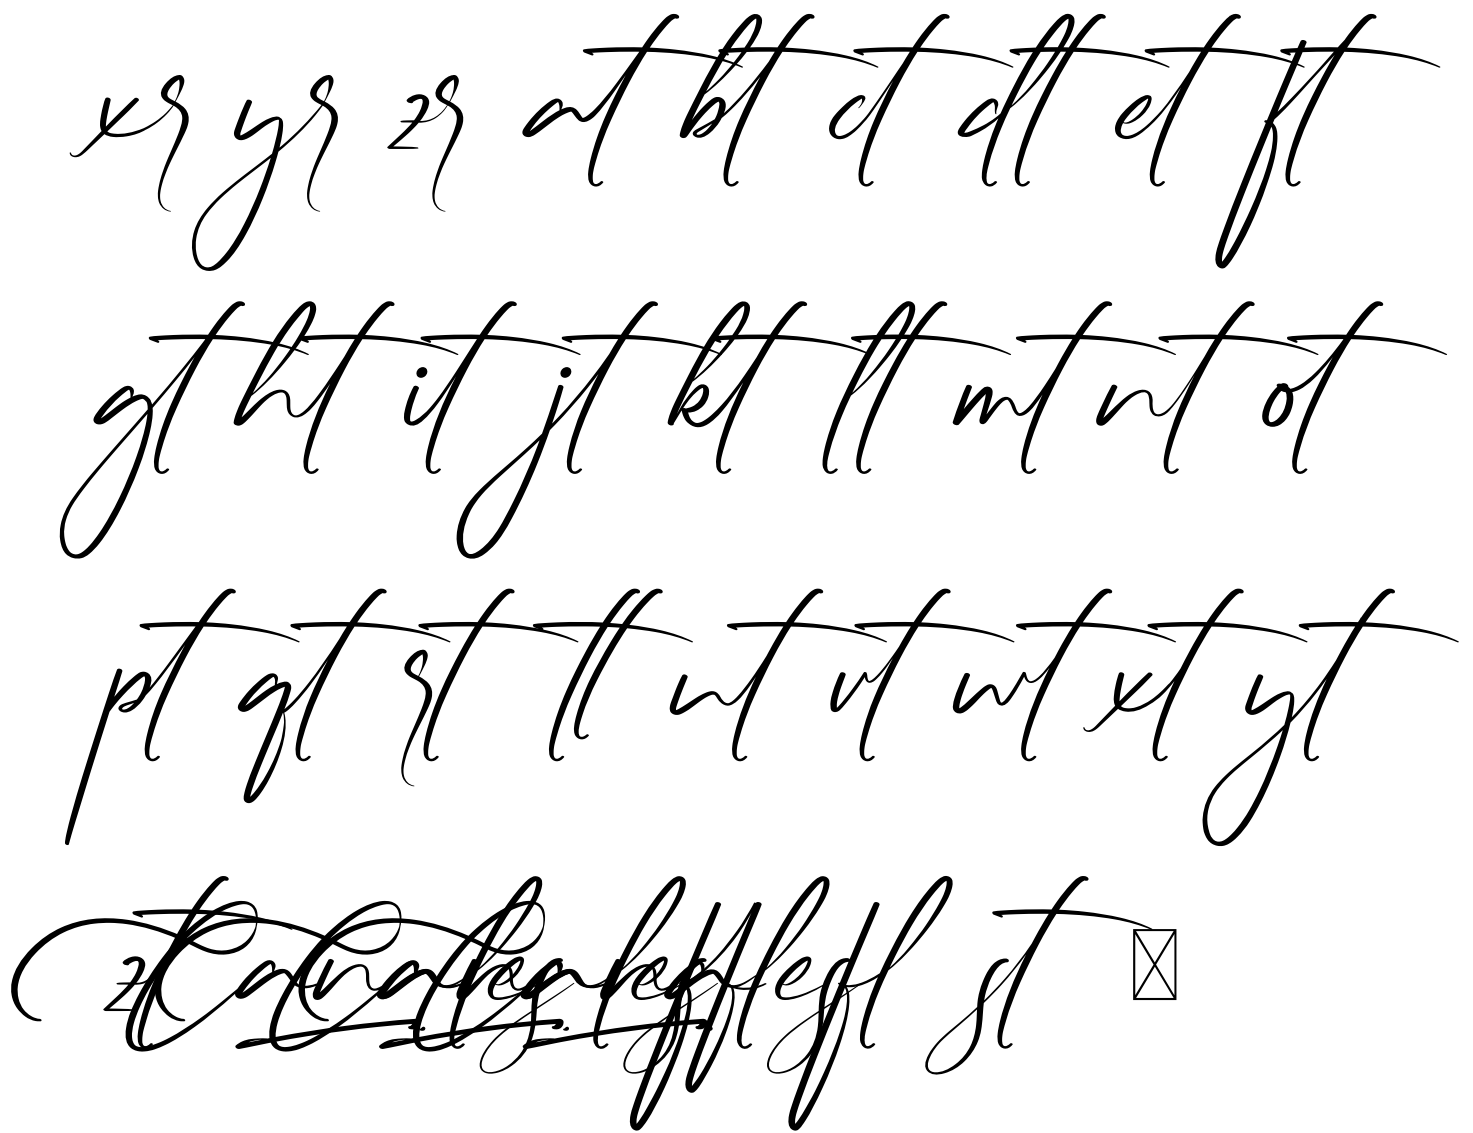 xr yr zr at bt ct dt et ft
gt ht it jt kt lt mt nt ot
pt qt rt tt ut vt wt xt yt
zt st